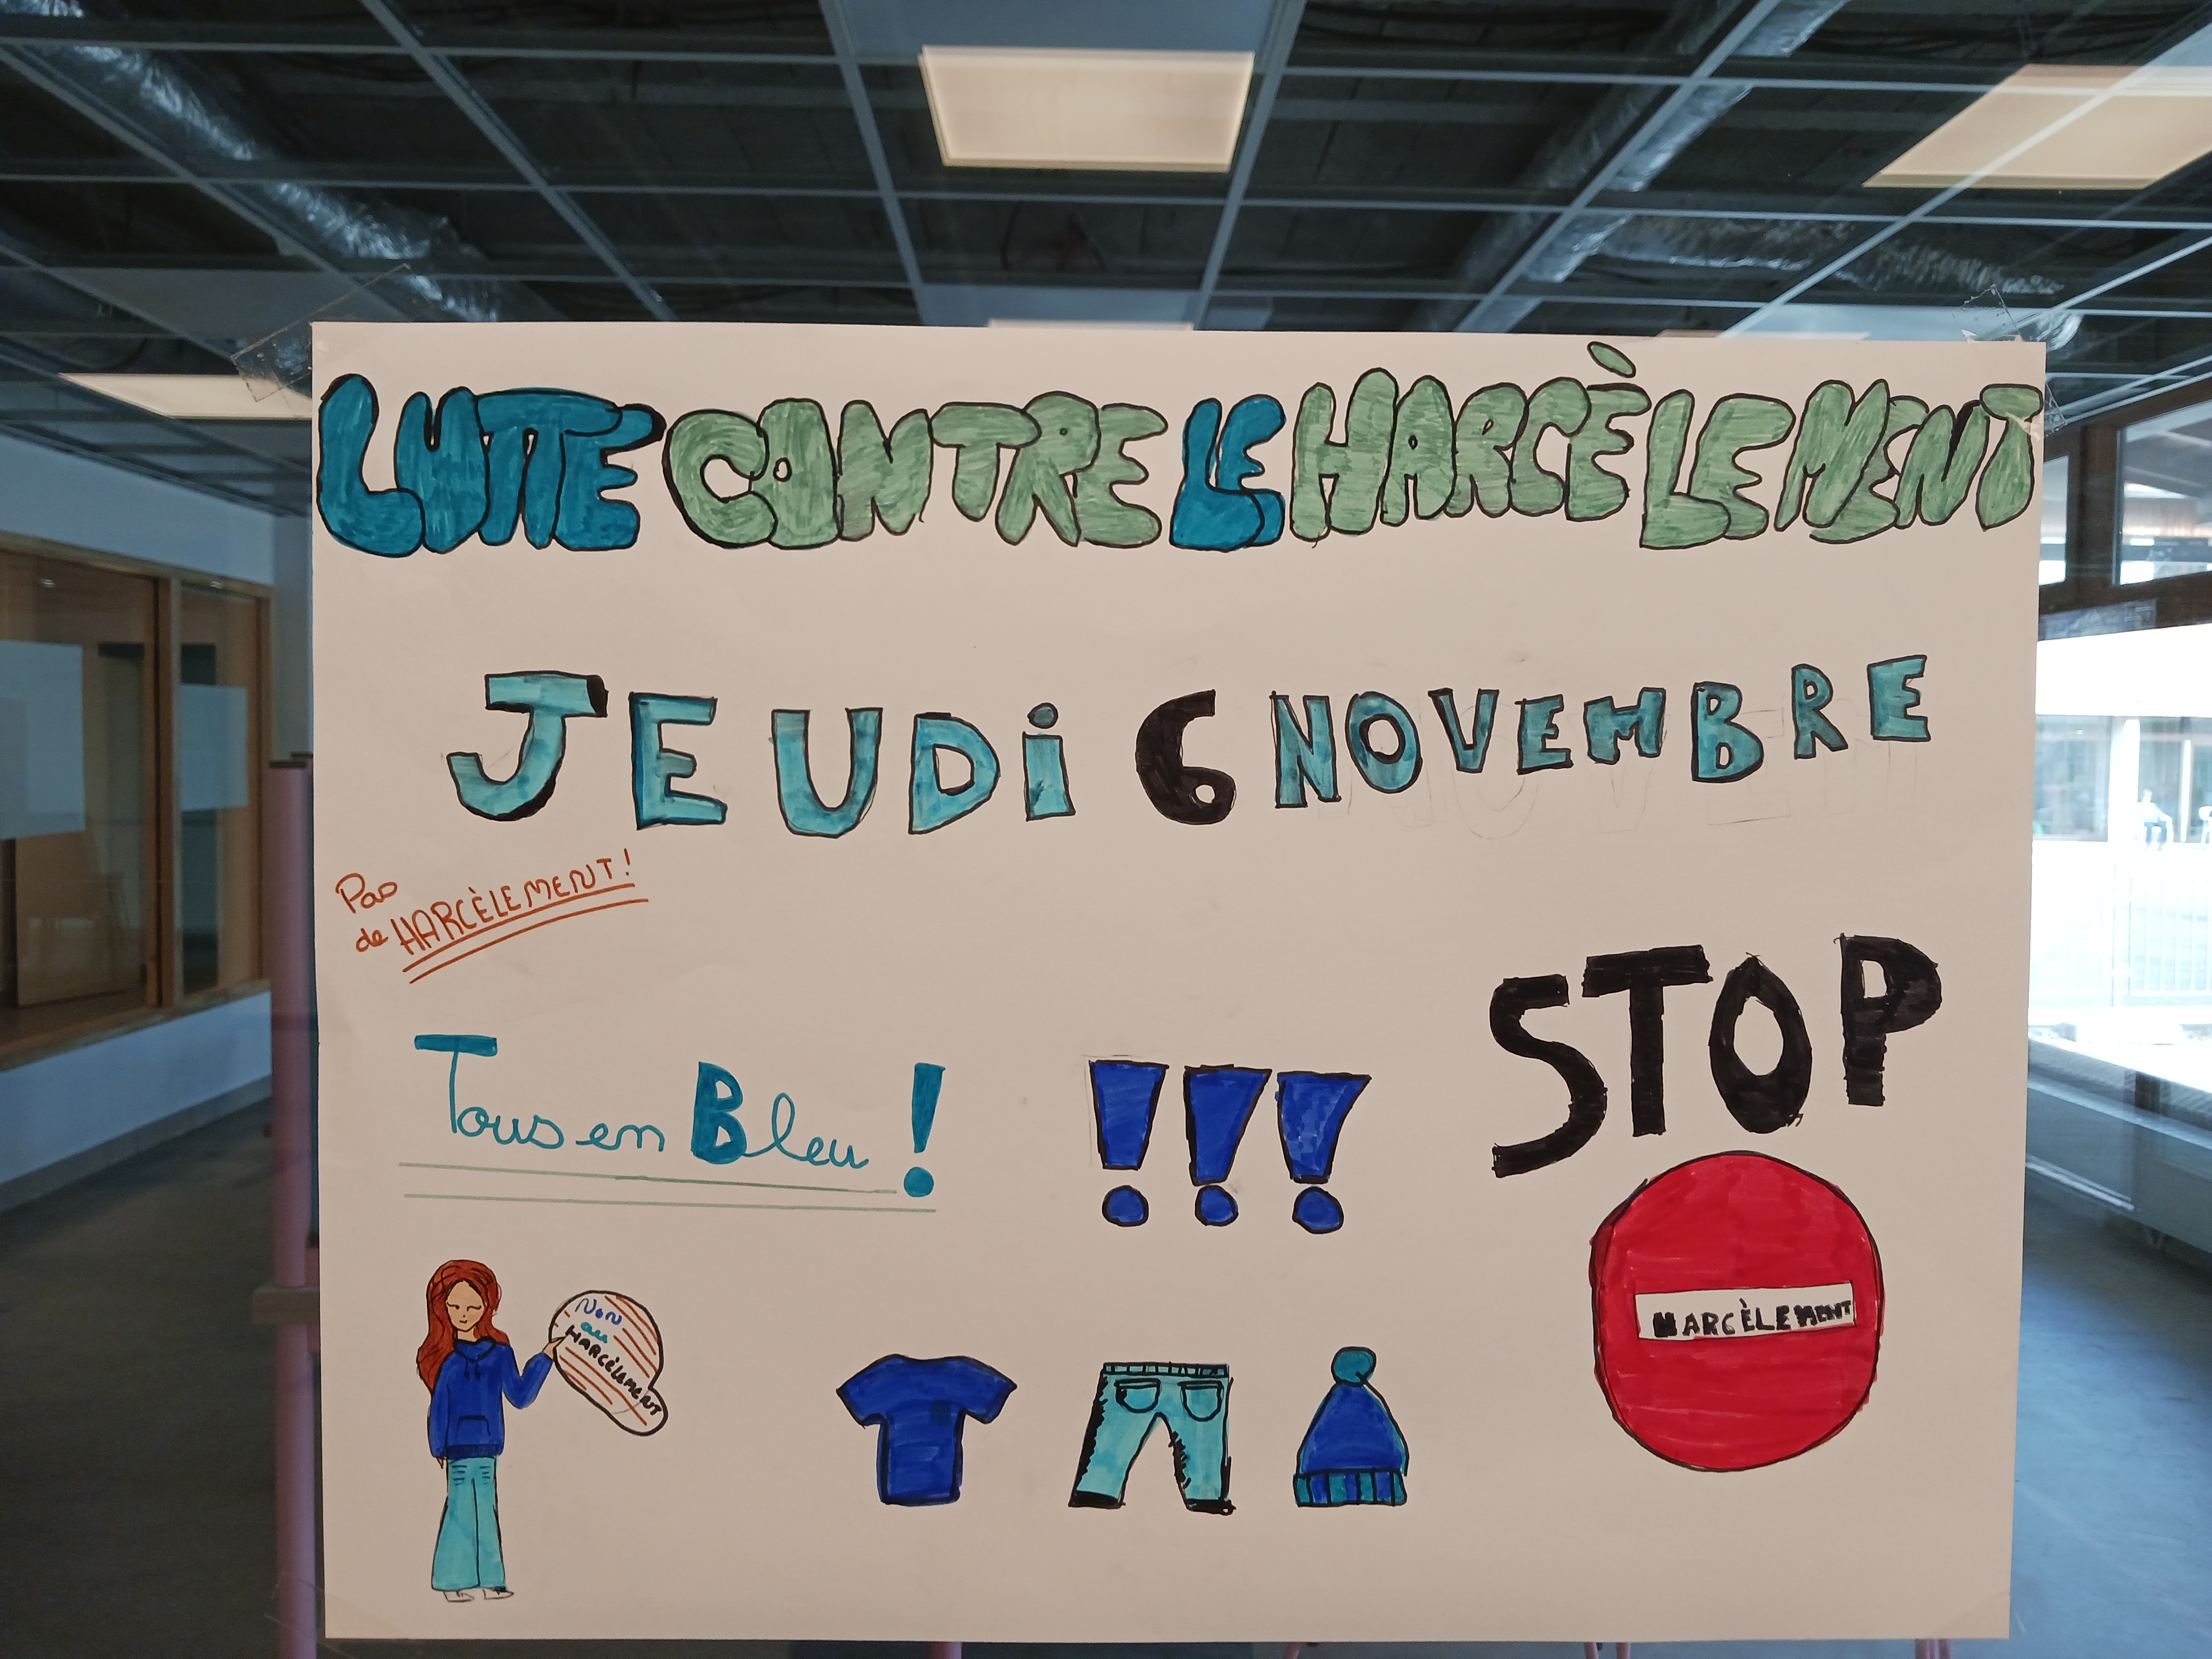 LUTTE CONTRE LE HARCÈLEMENT
JEUDi 6 NOVEMBRE
Pas
de HARCÈLEMENT!
STOP
Tous en Bleu !
!!!
NON
au
HARCÈLEMENT
HARCÈLEMENT